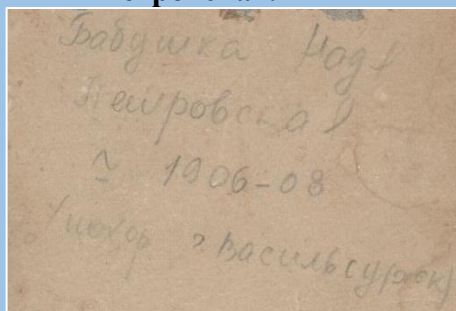 Бабушка Надя
Петровская
~ 1906-08
г. Васильсурск)